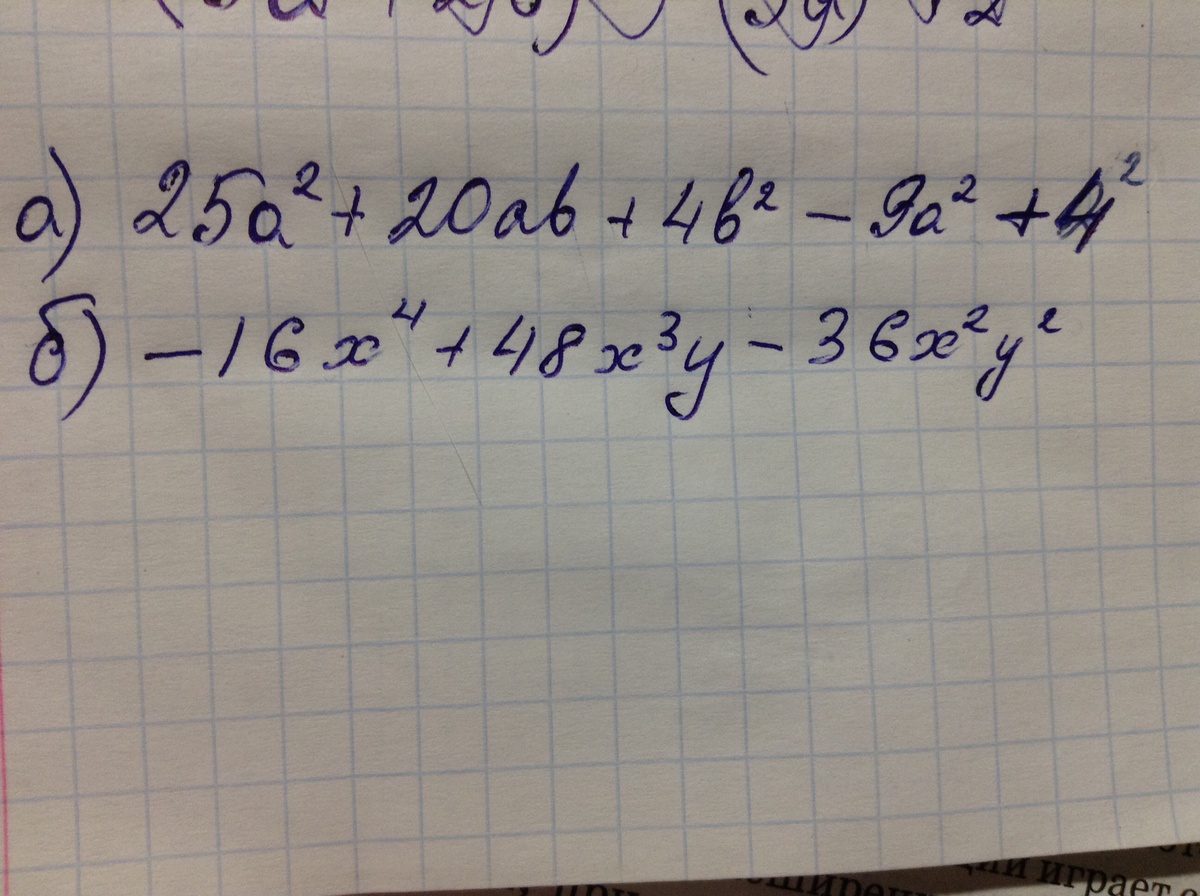 а) 25a² + 20ab + 4b² − 9a² + 4²
б) −16x⁴ + 48x³y − 36x²y²
играет